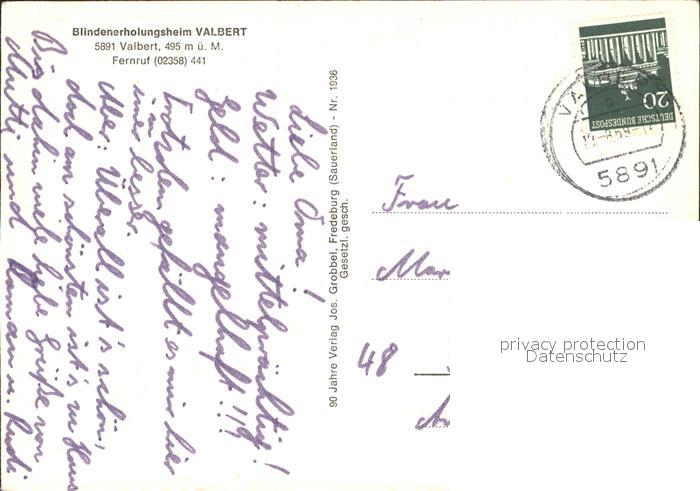 Blindenerholungsheim VALBERT
5891 Valbert, 495 m ü. M.
Fernruf (02358) 441
Liebe Oma!
Wetter: mittelprächtig!
Geld: mangelhaft!!!
Trotzdem gefällt es mir hier
immer besser.
Aber: Überall ist's schön,
doch am schönsten ist's zu Haus
Bis dahin viele liebe Grüße von
Mutti und u. Rudi
90 Jahre Verlag Jos. Grobbel, Fredeburg (Sauerland) - Nr. 1936
Gesetzl. gesch.
DEUTSCHE BUNDESPOST
20
5891
Frau
Mar
48
privacy protection
Datenschutz